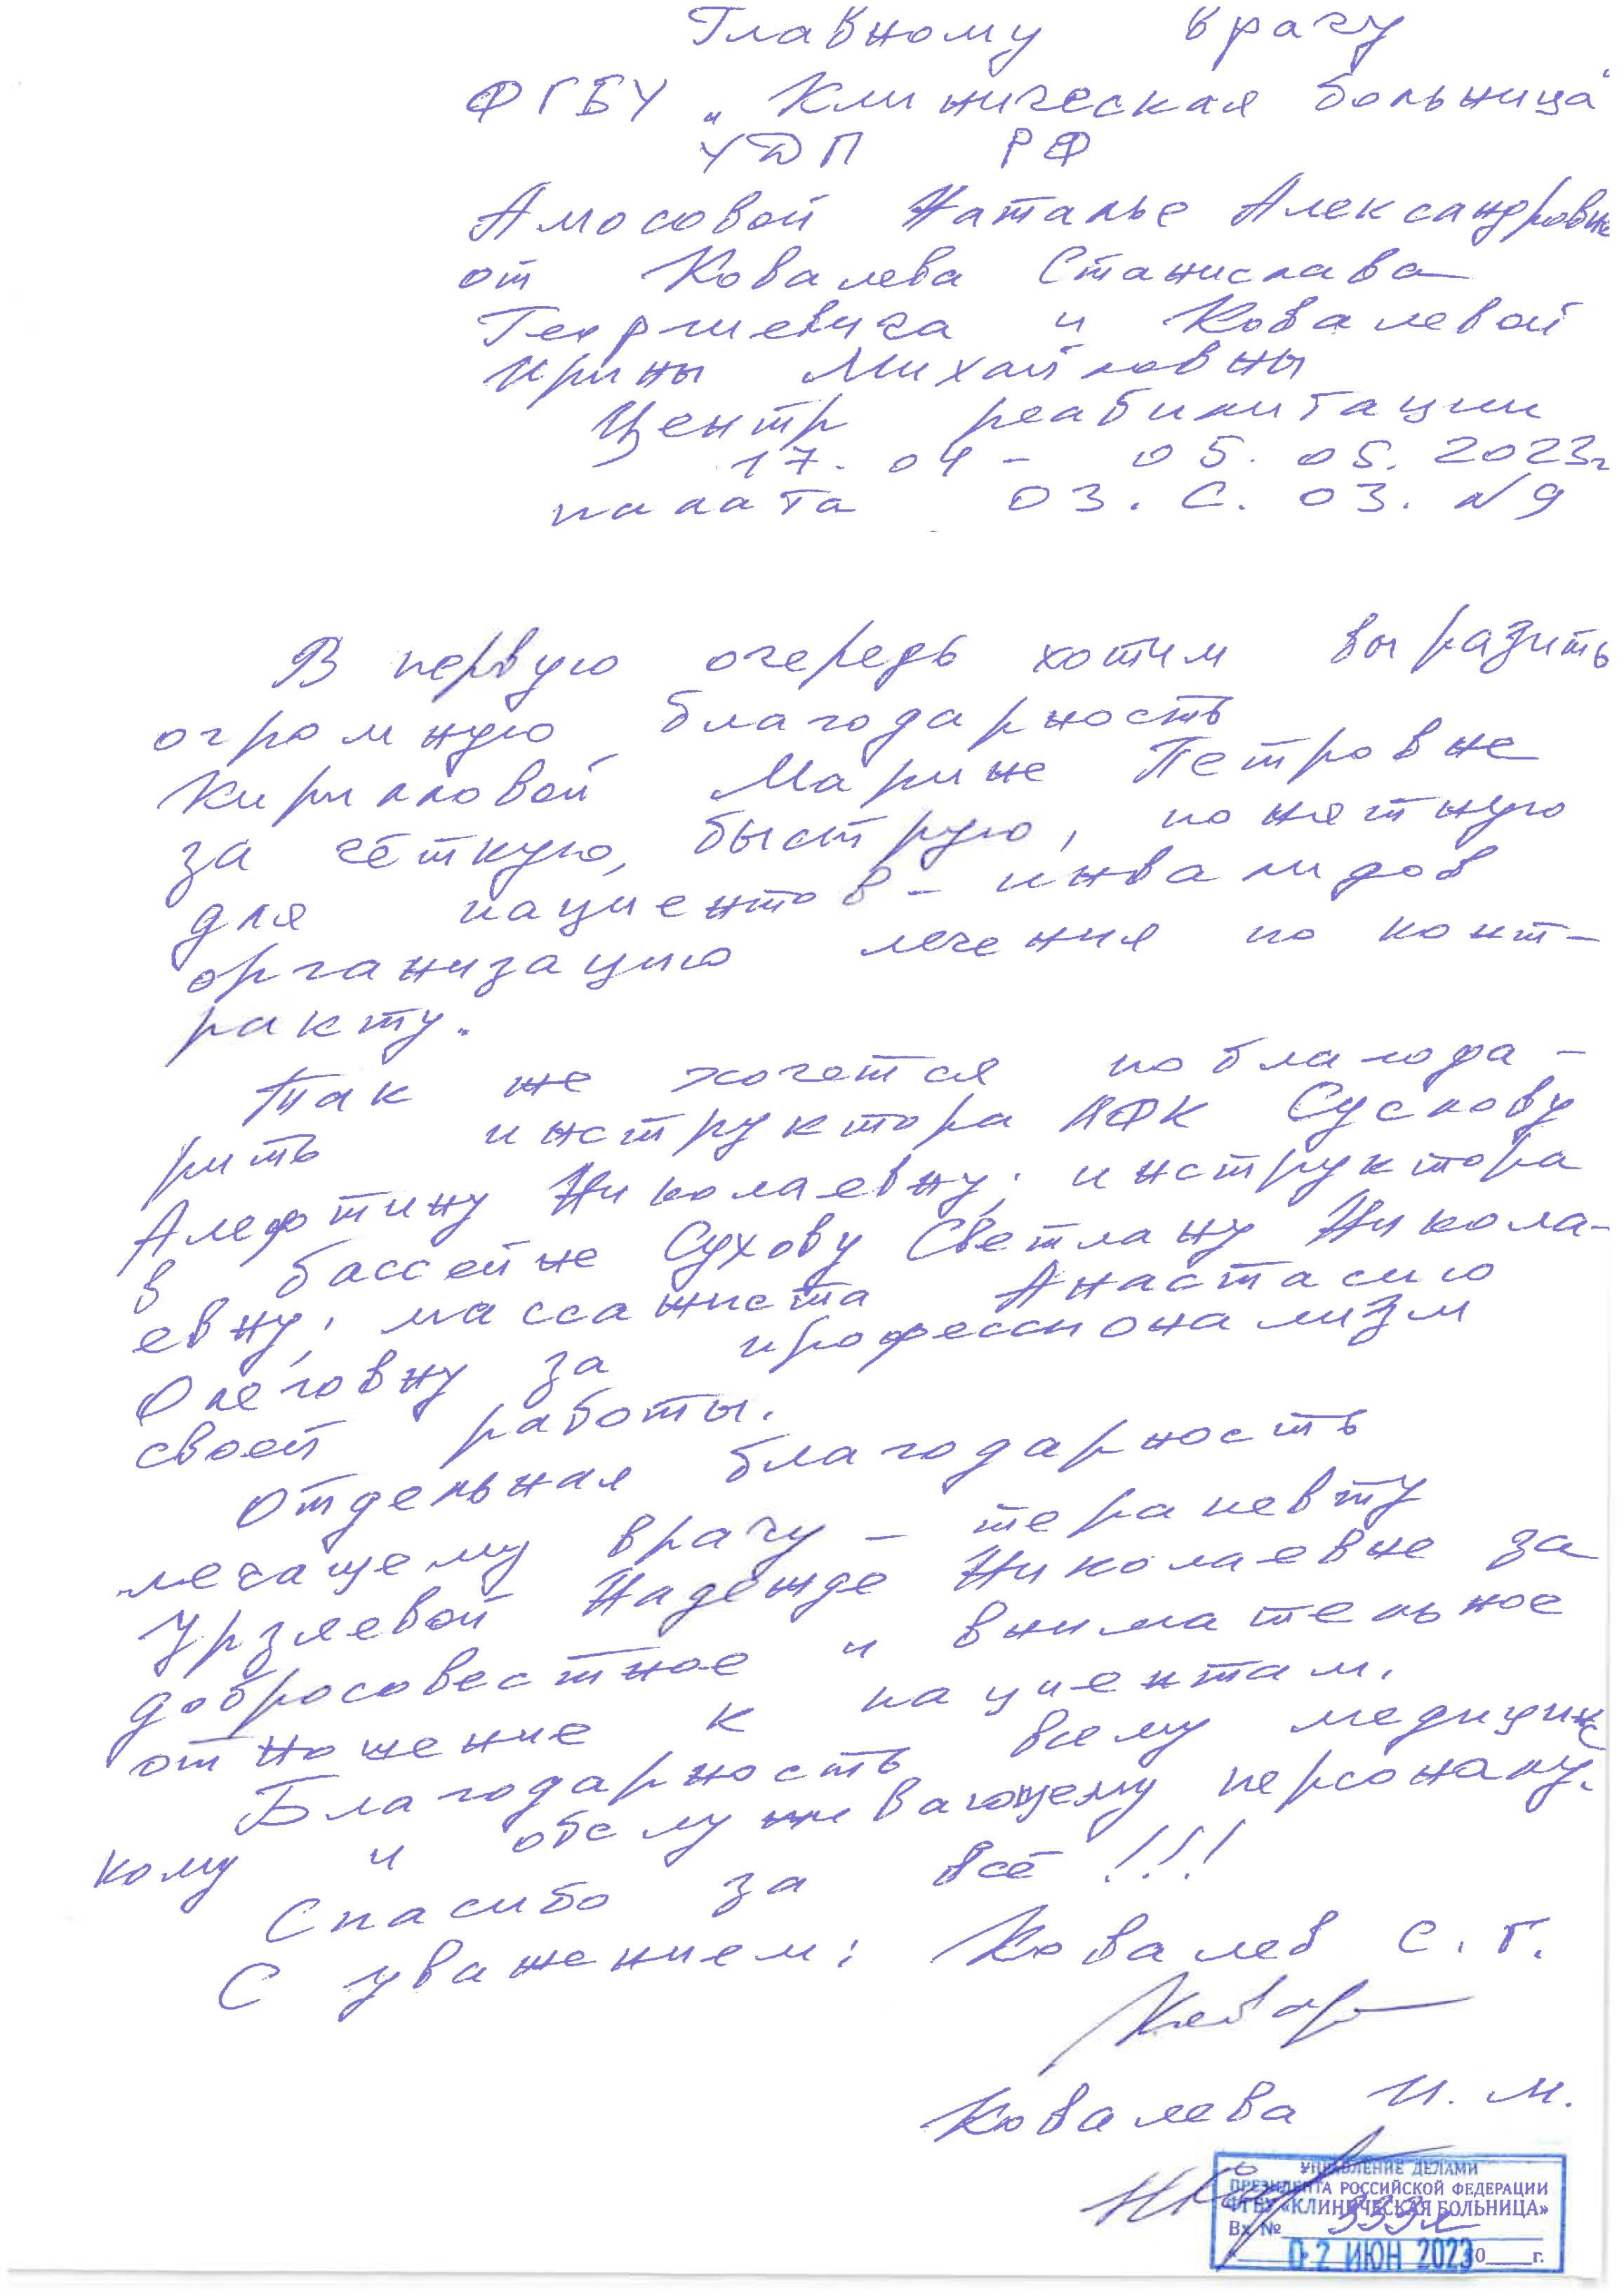 Главному врачу
ФГБУ „Клиническая больница"
УДП РФ
Амосовой Наталье Александровне
от Ковалева Станислава
Георгиевича и Ковалевой
Ирины Михайловны
Центр реабилитации
17.04 - 05.05.2023г
палата 03.С.03. N9
В первую очередь хотим выразить
огромную благодарность
Кирилловой Марине Петровне
за чёткую, быструю, понятную
для пациентов - инвалидов
организацию лечения по конт-
ракту.
Так же хочется поблагода-
рить инструктора ЛФК Суслову
Алефтину Николаевну, инструктора
в бассейне Сухову Светлану Никола-
евну, массажиста Анастасию
Олеговну за профессионализм
своей работы.
Отдельная благодарность
лечащему врачу - терапевту
Урзяевой Надежде Николаевне за
добросовестное и внимательное
отношение к пациентам.
Благодарность всему медицинс
кому и обслуживающему персоналу.
Спасибо за всё!!!
С уважением: Ковалев С. Г.
Ковалева И. М.
УПРАВЛЕНИЕ ДЕЛАМИ
ПРЕЗИДЕНТА РОССИЙСКОЙ ФЕДЕРАЦИИ
ФГБУ «КЛИНИЧЕСКАЯ БОЛЬНИЦА»
Вх. №
02 ИЮН 2023 20 г.